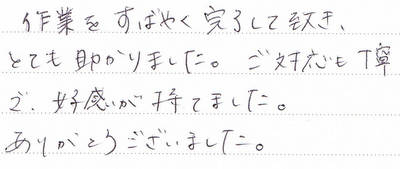 作業を すばやく 完了して頂き、
とても 助かりました。 ご対応も 丁寧
で、好感が 持てました。
ありがとうございました。